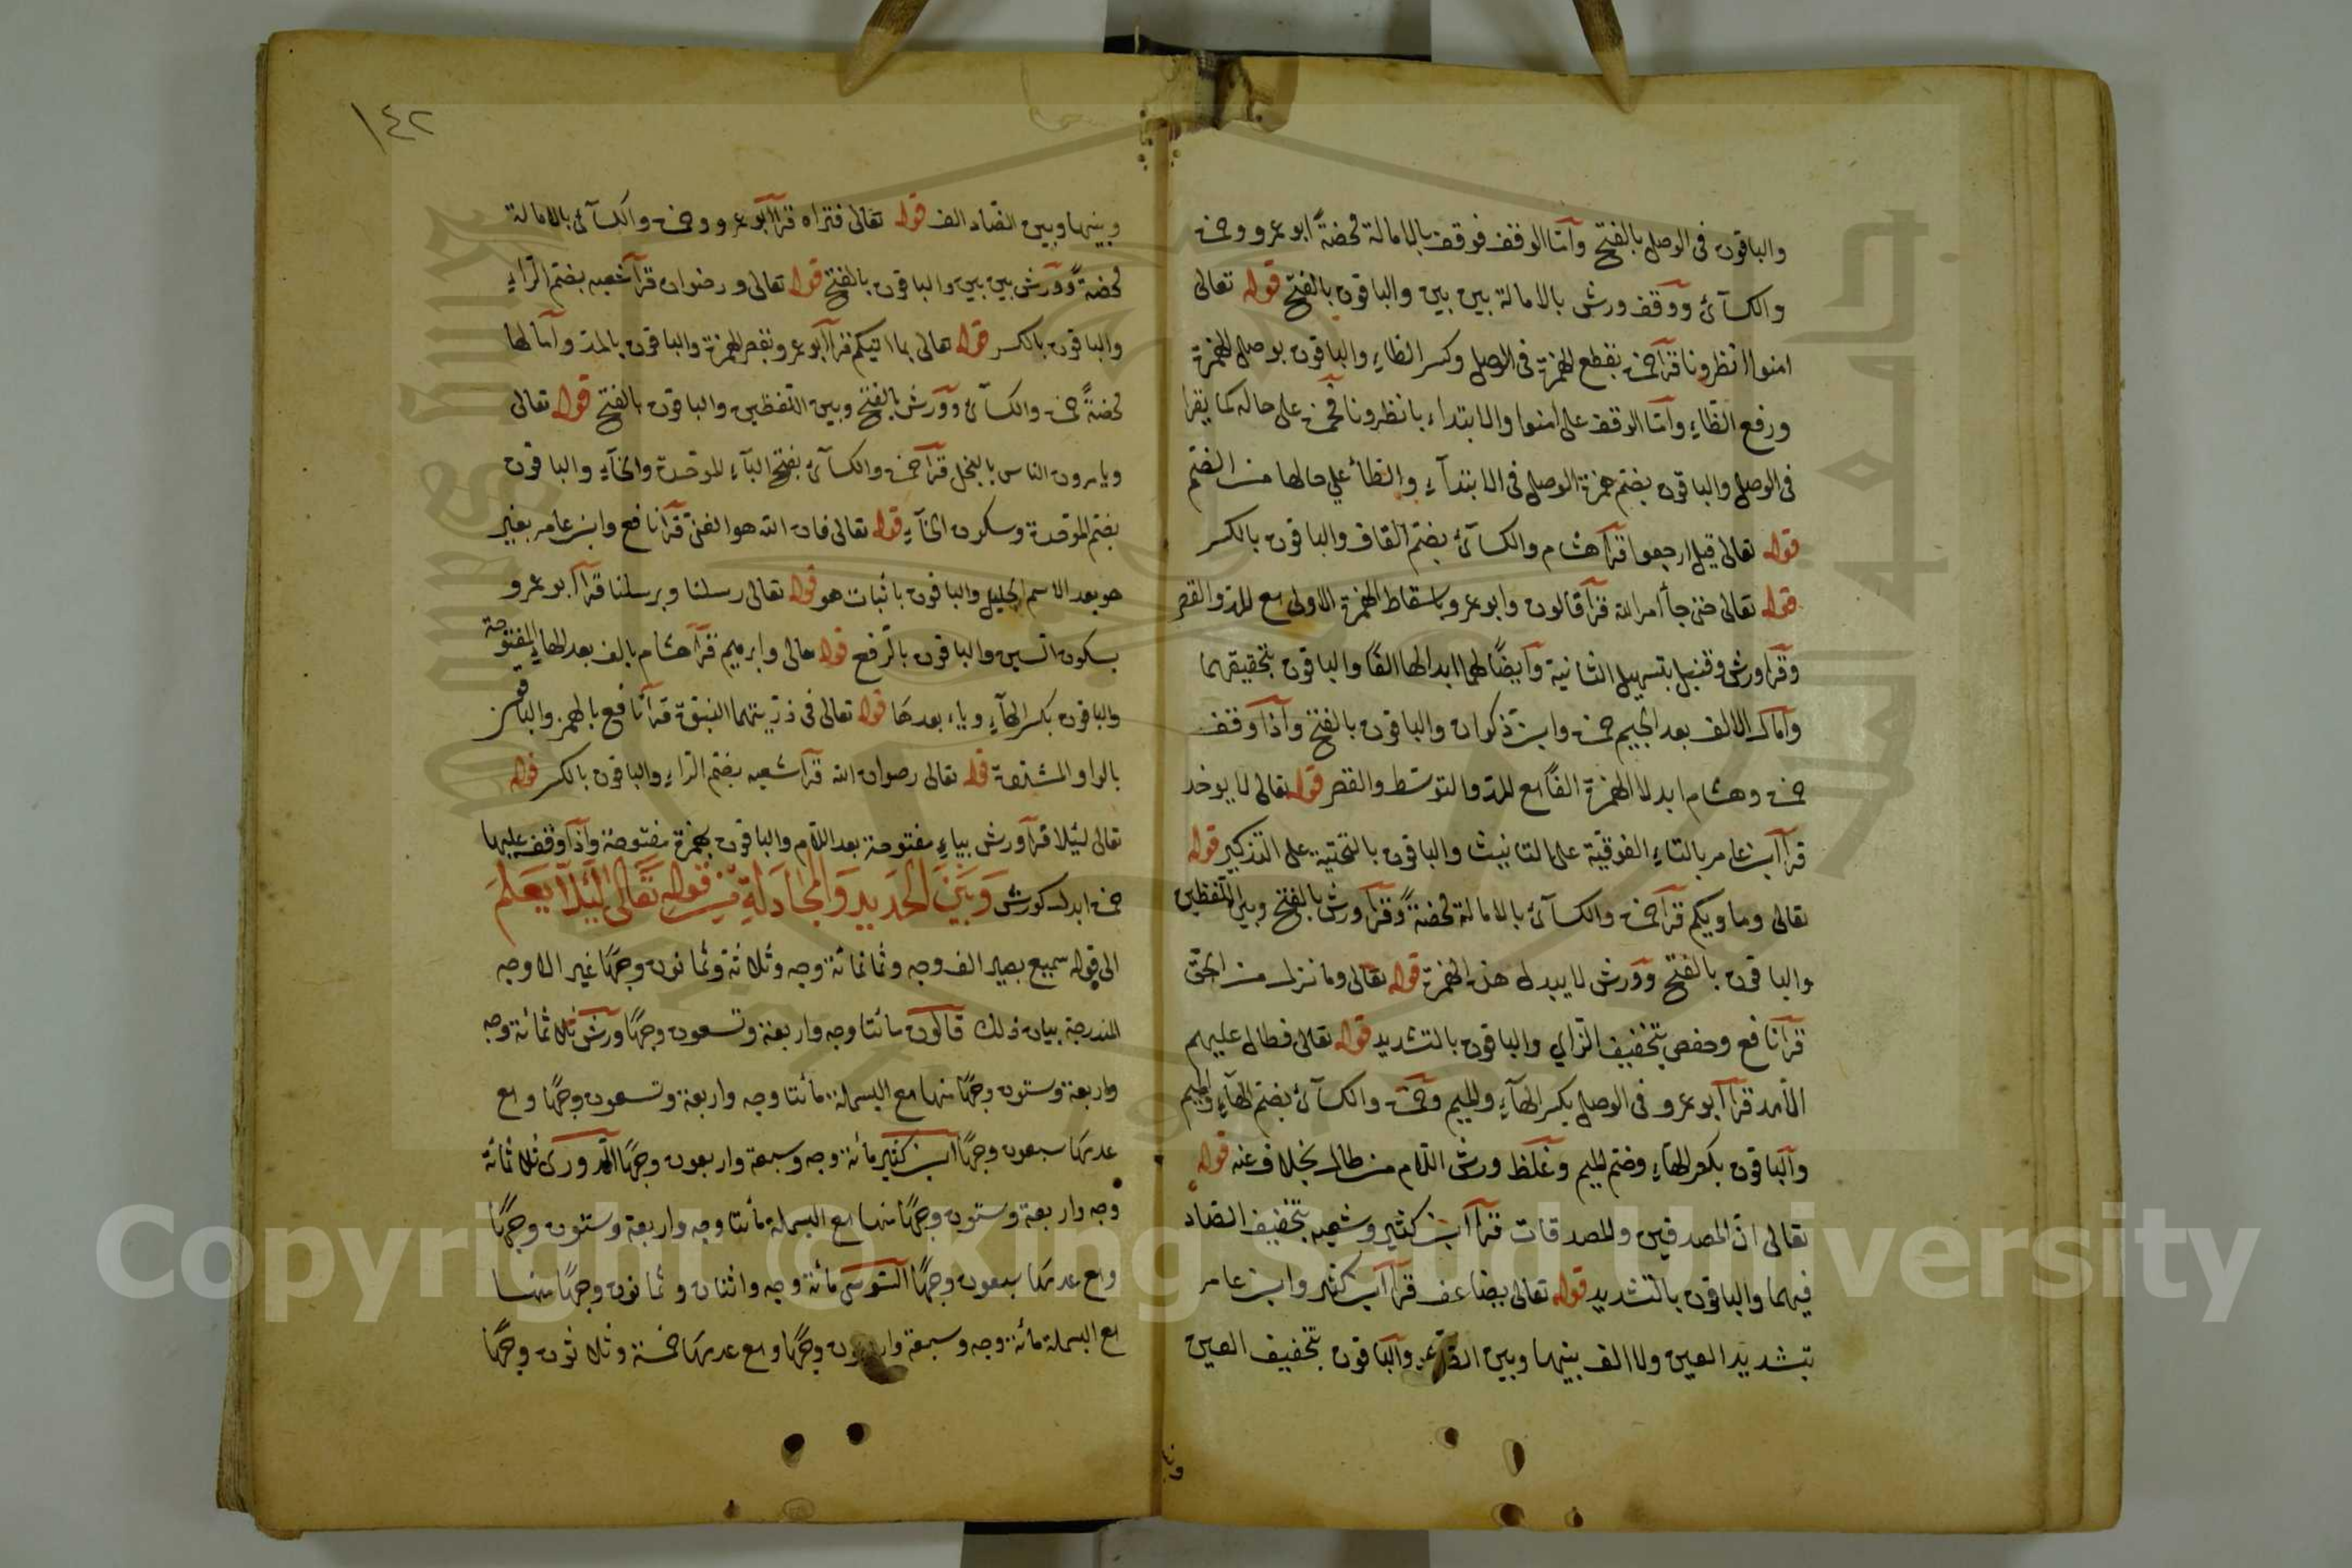 والباقون في الوصل بالفتح وأما الوقف فوقف بالامالة محضةً ابو عمرو وحمزة
والكسآئ ووقف ورش بالامالة بين بين والباقون بالفتح قوله تعالى
امنوا انظرونا قرأ حمزة بقطع الهمزة في الوصل وكسر الظاء والباقون بوصل الهمزة
ورفع الظاء وأما الوقف على امنوا والابتداء بانظرونا فحمزة على حاله كما يقرا
في الوصل والباقون بضم همزة الوصل في الابتدآء والظاء علي حالها من الضم
قوله تعالى قيل ارجعوا قرأ هشام والكسآئ بضم القاف والباقون بالكسر
قوله تعالى حتى جأ امر الله قرأ قالون وابو عمرو باسقاط الهمزة الاولى مع المد والقصر
وقرا ورش وقنبل بتسهيل الثانية وايضًا لهما ابدالها الفًا والباقون بتحقيقهما
وأمال الالف بعد الجيم حمزة وابن ذكوان والباقون بالفتح واذا وقف
حمزة وهشام ابدلا الهمزة الفًا مع المد والتوسط والقصر قوله تعالى لا يوخد
قرأ ابن عامر بالتاء الفوقية على التانيث والباقون بالتحتية على التذكير قوله
تعالى وماويكم قرأ حمزة والكسآئ بالامالة محضةً وقرأ ورش بالفتح وبين اللفظين
والباقون بالفتح وورش لا يبدل هذه الهمزة قوله تعالى وما نزل من الحق
قرأ نافع وحفص بتخفيف الزاي والباقون بالتشديد قوله تعالى فطال عليهم
الأمد قرأ أبو عمرو في الوصل بكسر الهآء والميم وحمزة والكسآئ بضم الهآء والميم
والباقون بكسر الهاء وضم الميم وغلظ ورش اللام من طال بخلاف عنه قوله
تعالى ان المصدقين والمصدقات قرأ ابن كثير وشعبه بتخفيف الصاد
فيهما والباقون بالتشديد قوله تعالى يضاعف قرأ ابن كثير وابن عامر
بتشديد العين ولا الف بينها وبين الضاد والباقون بتخفيف العين
١٤٢
وبينها وبين الضاد الف قوله تعالى فتراه قرأ أبو عمرو وحمزة والكسآئ بالامالة
محضةً وورش بين بين والباقون بالفتح قوله تعالى ورضوان قرأ شعبه بضم الراء
والباقون بالكسر قوله تعالى بما اتيكم قرأ أبو عمرو بقصر الهمزة والباقون بالمد وأمالها
محضةً حمزة والكسآئ وورش بالفتح وبين اللفظين والباقون بالفتح قوله تعالى
ويامرون الناس بالبخل قرأ حمزة والكسآئ بفتح البآء الموحدة والخآء والباقون
بضم الموحدة وسكون الخآء قوله تعالى فان الله هو الغنى قرأ نافع وابن عامر بغير
هو بعد الاسم الجليل والباقون باثبات هو قوله تعالى رسلنا وبرسلنا قرأ أبو عمرو
بسكون السين والباقون بالرفع قوله تعالى وابرهيم قرأ هشام بالف بعد الهاء المفتوحة
والباقون بكسر الهآء وياء بعدها قوله تعالى في ذريتهما النبوة قرأ نافع بالهمز والباقون
بالواو المشددة قوله تعالى رضوان الله قرأ شعبه بضم الراء والباقون بالكسر قوله
تعالى ليلا قرأ ورش بياءٍ مفتوحة بعد اللام والباقون بهمزة مفتوحة واذا وقف عليها
حمزة ابدل كورش وَبَيْنَ الحَدِيدِ وَالمُجَادَلَةِ مِنْ قَوْلِهِ تَعَالى لِئَلَّا يَعْلَمَ
الى قوله سميع بصير الف وجه وثمانمائة وجه وثلاثة وثمانون وجهًا غير الاوجه
المندرجة بيان ذلك قالون مائتا وجه واربعة وتسعون وجهًا ورش ثلاثمائة وجه
واربعة وستون وجهًا منها مع البسملة مائتا وجه واربعة وتسعون وجهًا ومع
عدمها سبعون وجهًا ابن كثير مائة وجه وسبعة واربعون وجهًا الدورى ثلاثمائة
وجه واربعة وستون وجهًا منها مع البسملة مائتا وجه واربعة وستون وجهًا
ومع عدمها سبعون وجهًا السوسى مائة وجه واثنان وثمانون وجهًا منها
مع البسملة مائة وجه وسبعة واربعون وجهًا ومع عدمها خمسة وثلاثون وجهًا
Copyright © King Saud University